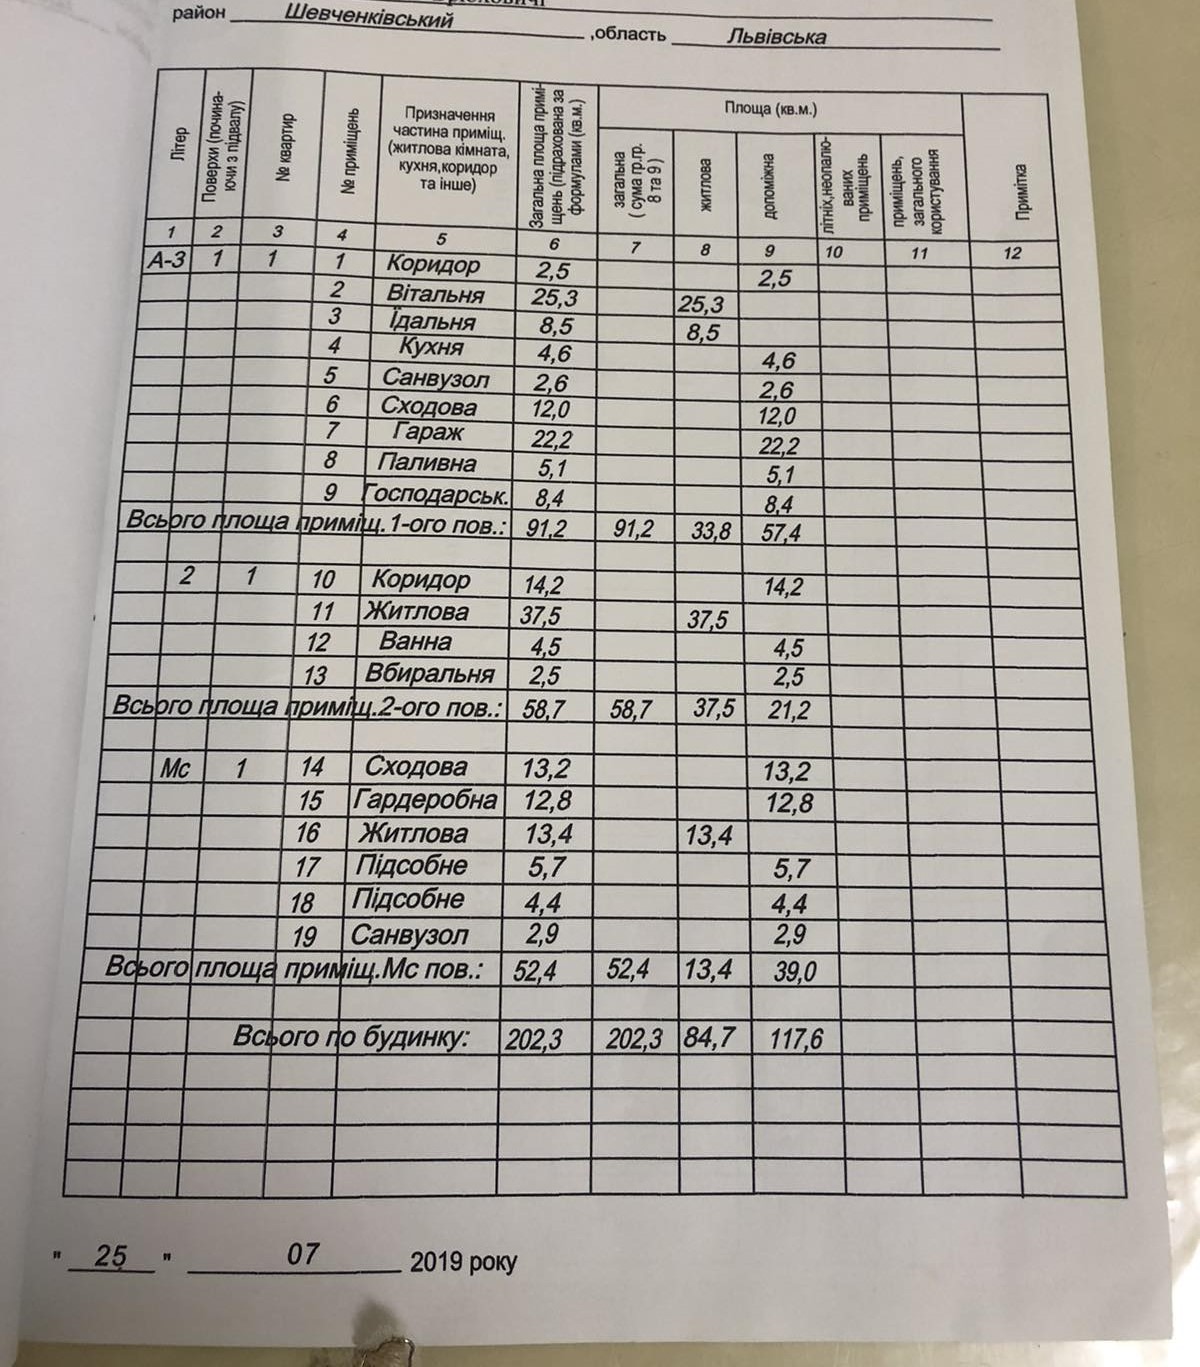 район Шевченківський ,область Львівська
Літер
Поверхи (почина-
ючи з підвалу)
№ квартир
№ приміщень
Призначення
частина приміщ.
(житлова кімната,
кухня,коридор
та інше)
Загальна площа примі-
щень (підрахована за
формулами (кв.м.)
Площа (кв.м.)
загальна
( сума гр.гр.
8 та 9 )
житлова
допоміжна
літніх,неопалю-
ваних
приміщень
приміщень,
загального
користування
Примітка
1 2 3 4 5 6 7 8 9 10 11 12
А-3 1 1 1 Коридор 2,5 2,5
2 Вітальня 25,3 25,3
3 Їдальня 8,5 8,5
4 Кухня 4,6 4,6
5 Санвузол 2,6 2,6
6 Сходова 12,0 12,0
7 Гараж 22,2 22,2
8 Паливна 5,1 5,1
9 Господарськ. 8,4 8,4
Всього площа приміщ. 1-ого пов.: 91,2 91,2 33,8 57,4
2 1 10 Коридор 14,2 14,2
11 Житлова 37,5 37,5
12 Ванна 4,5 4,5
13 Вбиральня 2,5 2,5
Всього площа приміщ.2-ого пов.: 58,7 58,7 37,5 21,2
Мс 1 14 Сходова 13,2 13,2
15 Гардеробна 12,8 12,8
16 Житлова 13,4 13,4
17 Підсобне 5,7 5,7
18 Підсобне 4,4 4,4
19 Санвузол 2,9 2,9
Всього площа приміщ.Мс пов.: 52,4 52,4 13,4 39,0
Всього по будинку: 202,3 202,3 84,7 117,6
" 25 " 07 2019 року